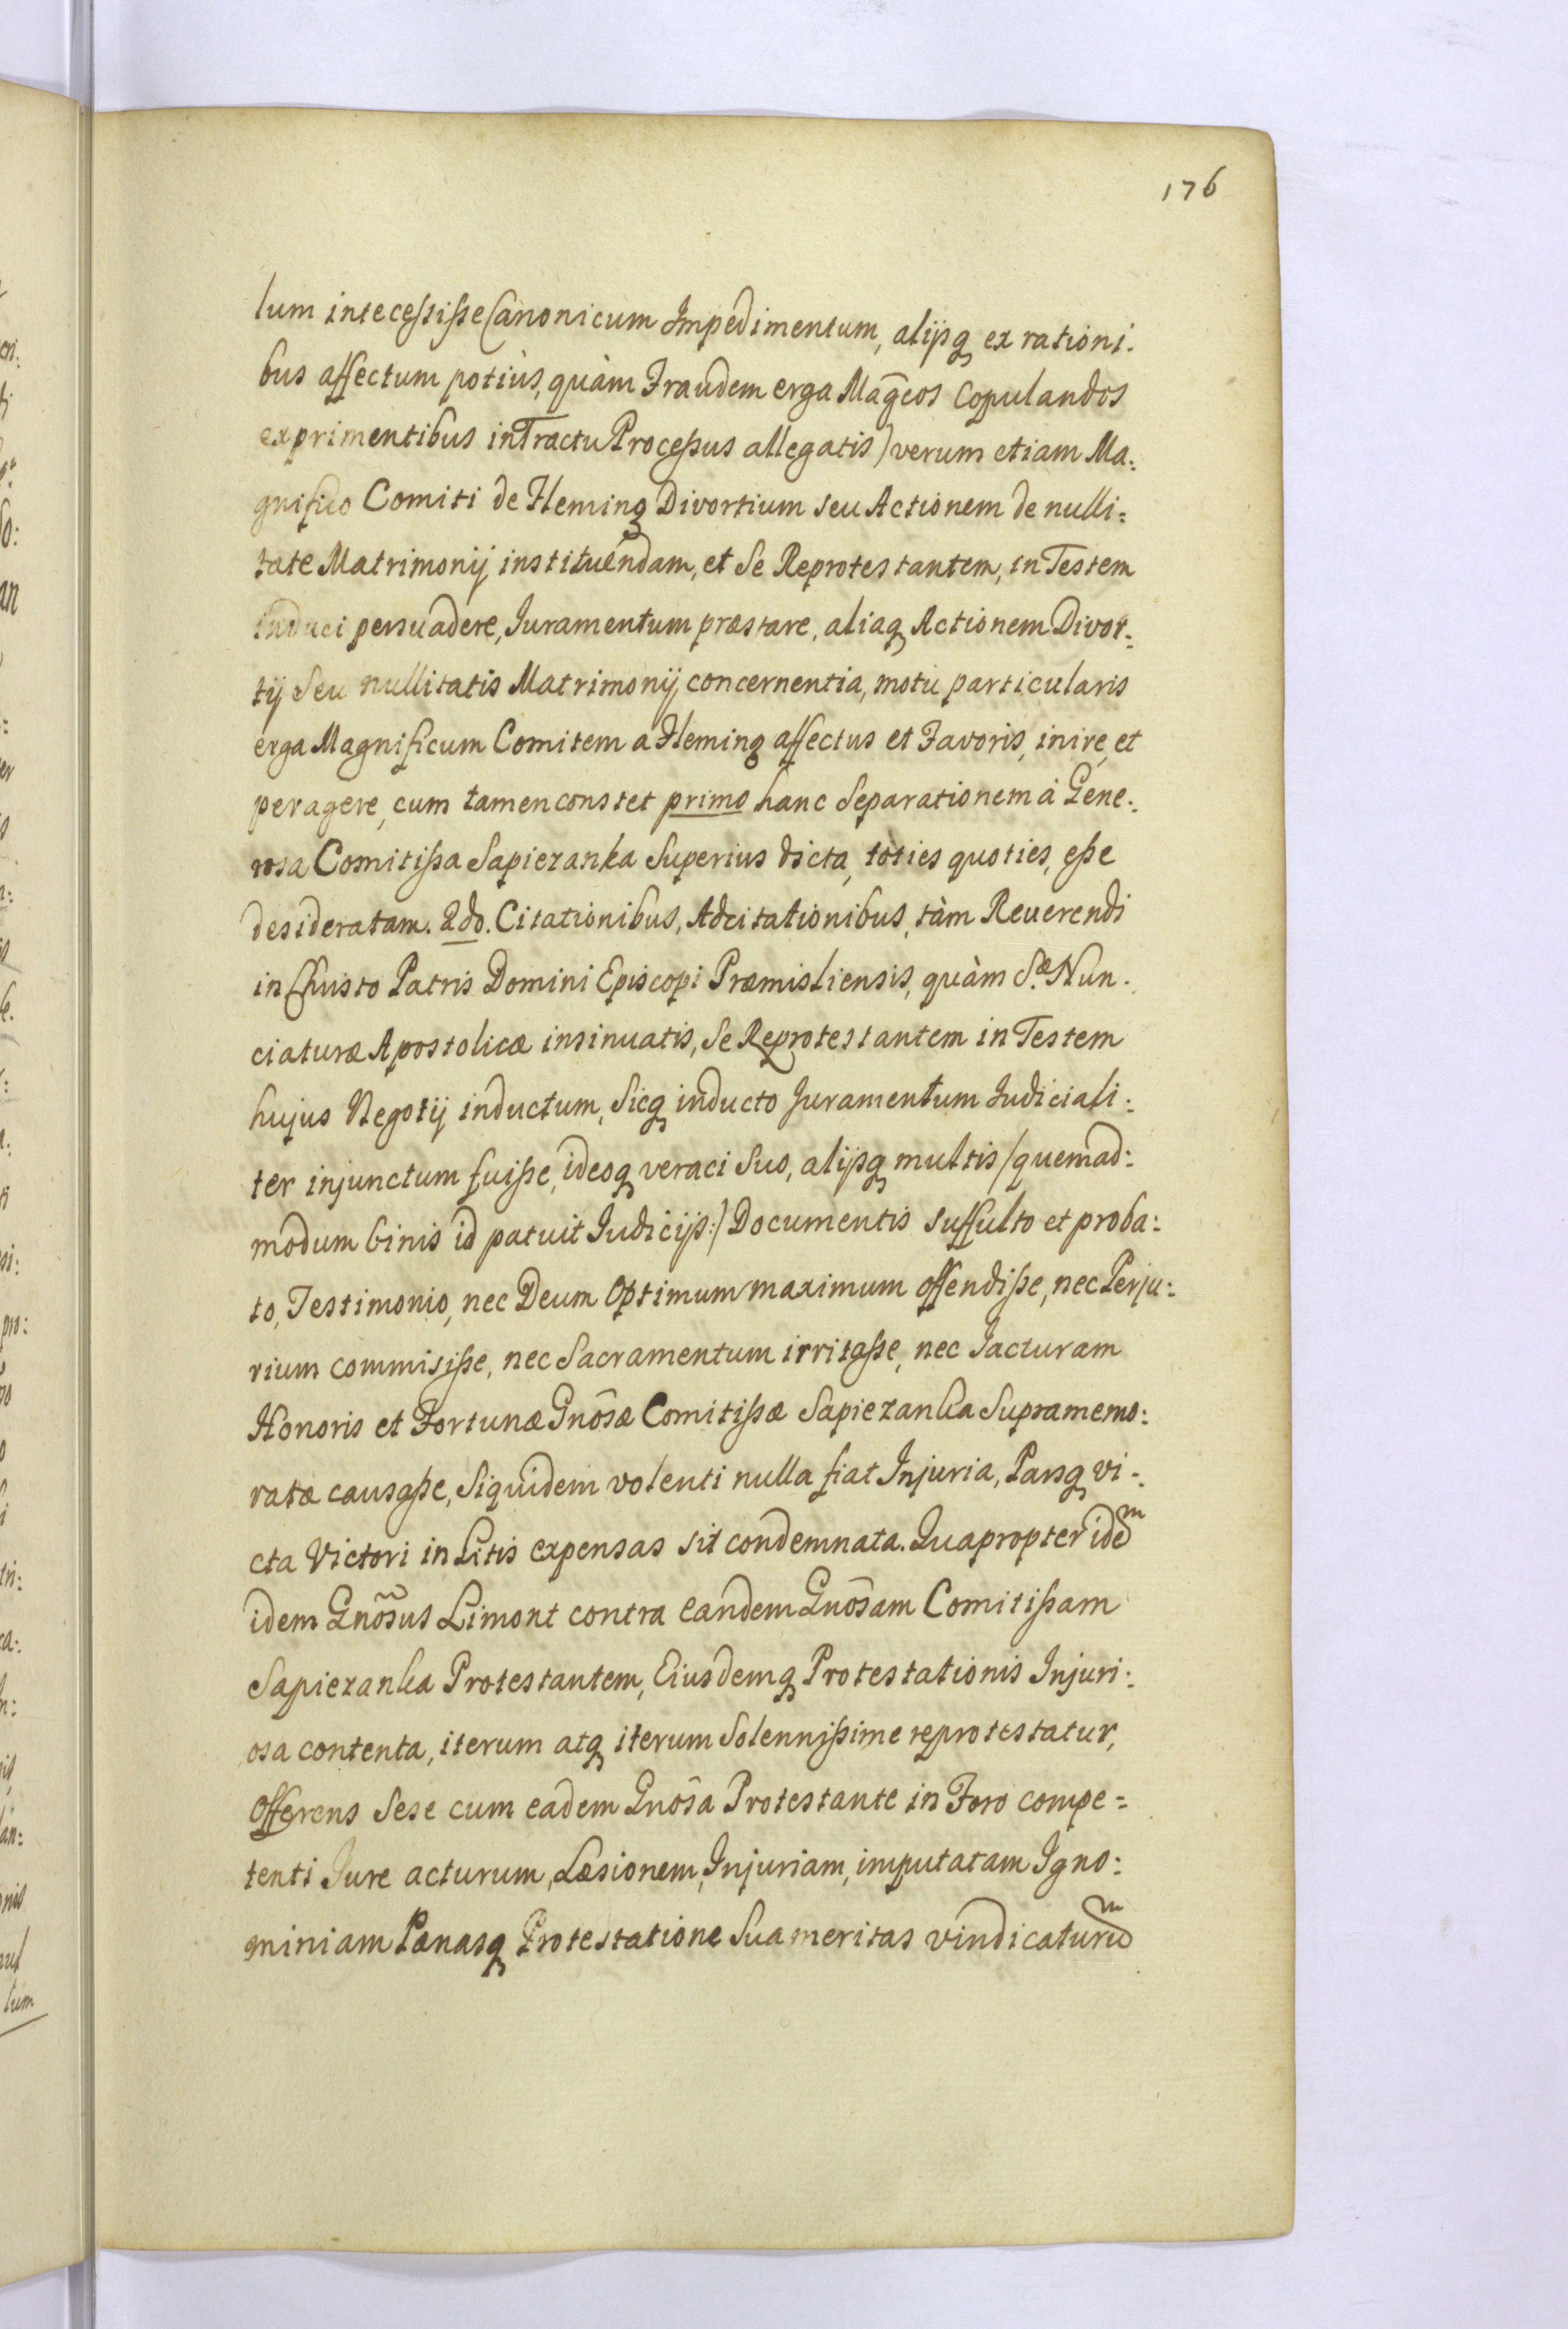 176
lum intecessisse Canonicum Impedimentum, alijsq ex rationi:
bus affectum potiùs, quàm Fraudem erga Mag̃cos Copulandos
exprimentibus in Tractu Processus allegatis) verum etiam Ma:
gnifico Comiti de Fleming Divortium seu Actionem de nulli:
tate Matrimonij instituendam, et Se Reprotestantem, in Testem
induci persuadere, Iuramentum præstare, aliaq Actionem Divor:
tij Seu nullitatis Matrimonij concernentia, motu particularis
erga Magnificum Comitem a Fleming affectus et Favoris, inire, et
peragere, cum tamen constet primo hanc Separationem à Gene:
rosa Comitissa Sapiezanka Superius dicta, toties quoties, esse
desideratam. 2do. Citationibus, Adcitationibus, tàm Reuerendi
in Christo Patris Domini Episcopi Præmisliensis, quàm S.æ Nun:
ciaturæ Apostolicæ insinuatis, Se Reprotestantem in Testem
hujus Negotij inductum, Sicq inducto Juramentum Judiciali:
ter injunctum fuisse, ideoq veraci Suo, alijsq multis /quemad:
modum binis id patuit Judicijs:/ Documentis suffulto et proba:
to, Testimonio, nec Deum Optimum maximum offendisse, nec Perju:
rium commisisse, nec Sacramentum irritasse, nec Jacturam
Honoris et Fortunæ Gnõsæ Comitissæ Sapiezanka Supramemo:
ratæ causasse, Siquidem volenti nulla fiat Injuria, Parsq vi:
cta Victori in Litis expensas sit condemnata. Quapropter idem
idem Gnõsus Limont contra eandem Gnõsam Comitissam
Sapiezanka Protestantem, Eiusdemq Protestationis Injuri:
osa contenta, iterum atq iterum Solennissime reprotestatur,
Offerens Sese cum eadem Gnõsa Protestante in Foro compe=
tenti Jure acturum, Læsionem, Injuriam, imputatam Igno:
miniam Pænasq Protestatione Sua meritas vindicaturum